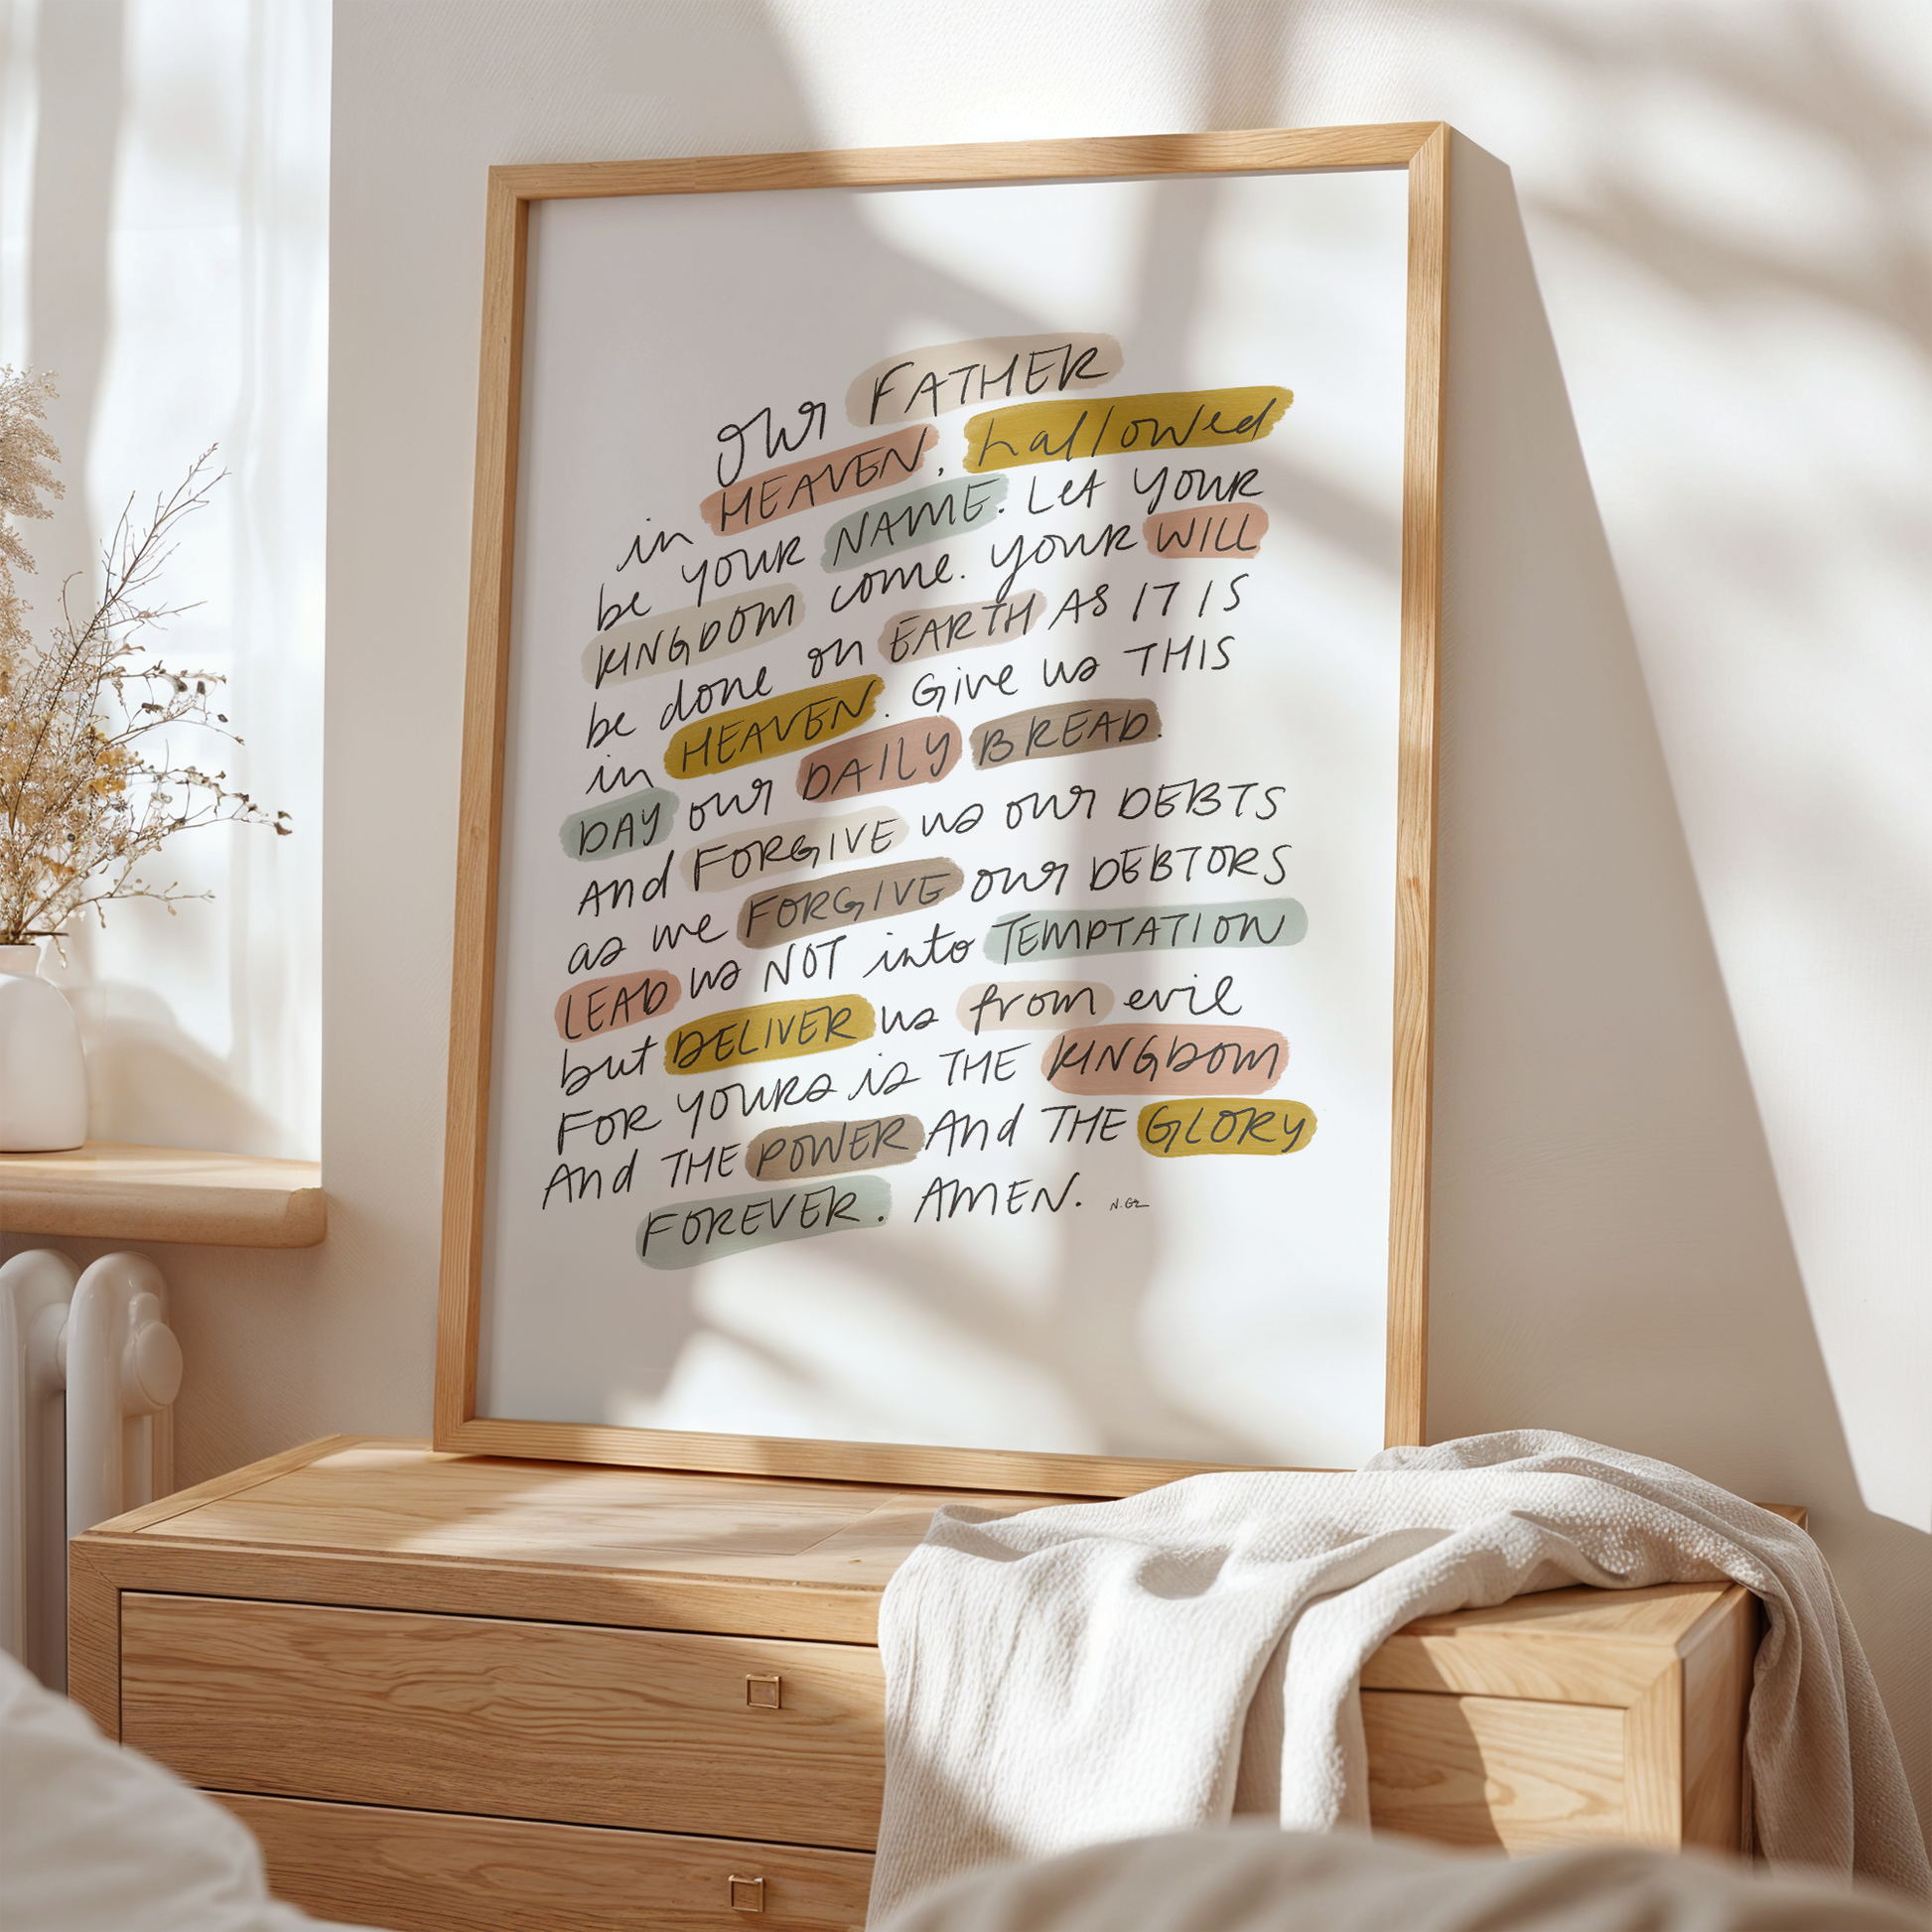 our FATHER
in HEAVEN, hallowed
be your NAME. Let your
KINGDOM come. your WILL
be done on EARTH AS IT IS
in HEAVEN. Give us THIS
DAY our DAILY BREAD.
And FORGIVE us our DEBTS
as we FORGIVE our DEBTORS
LEAD us NOT into TEMPTATION
but DELIVER us from evil
FOR yours is THE KINGDOM
And THE POWER And THE GLORY
FOREVER. AMEN.